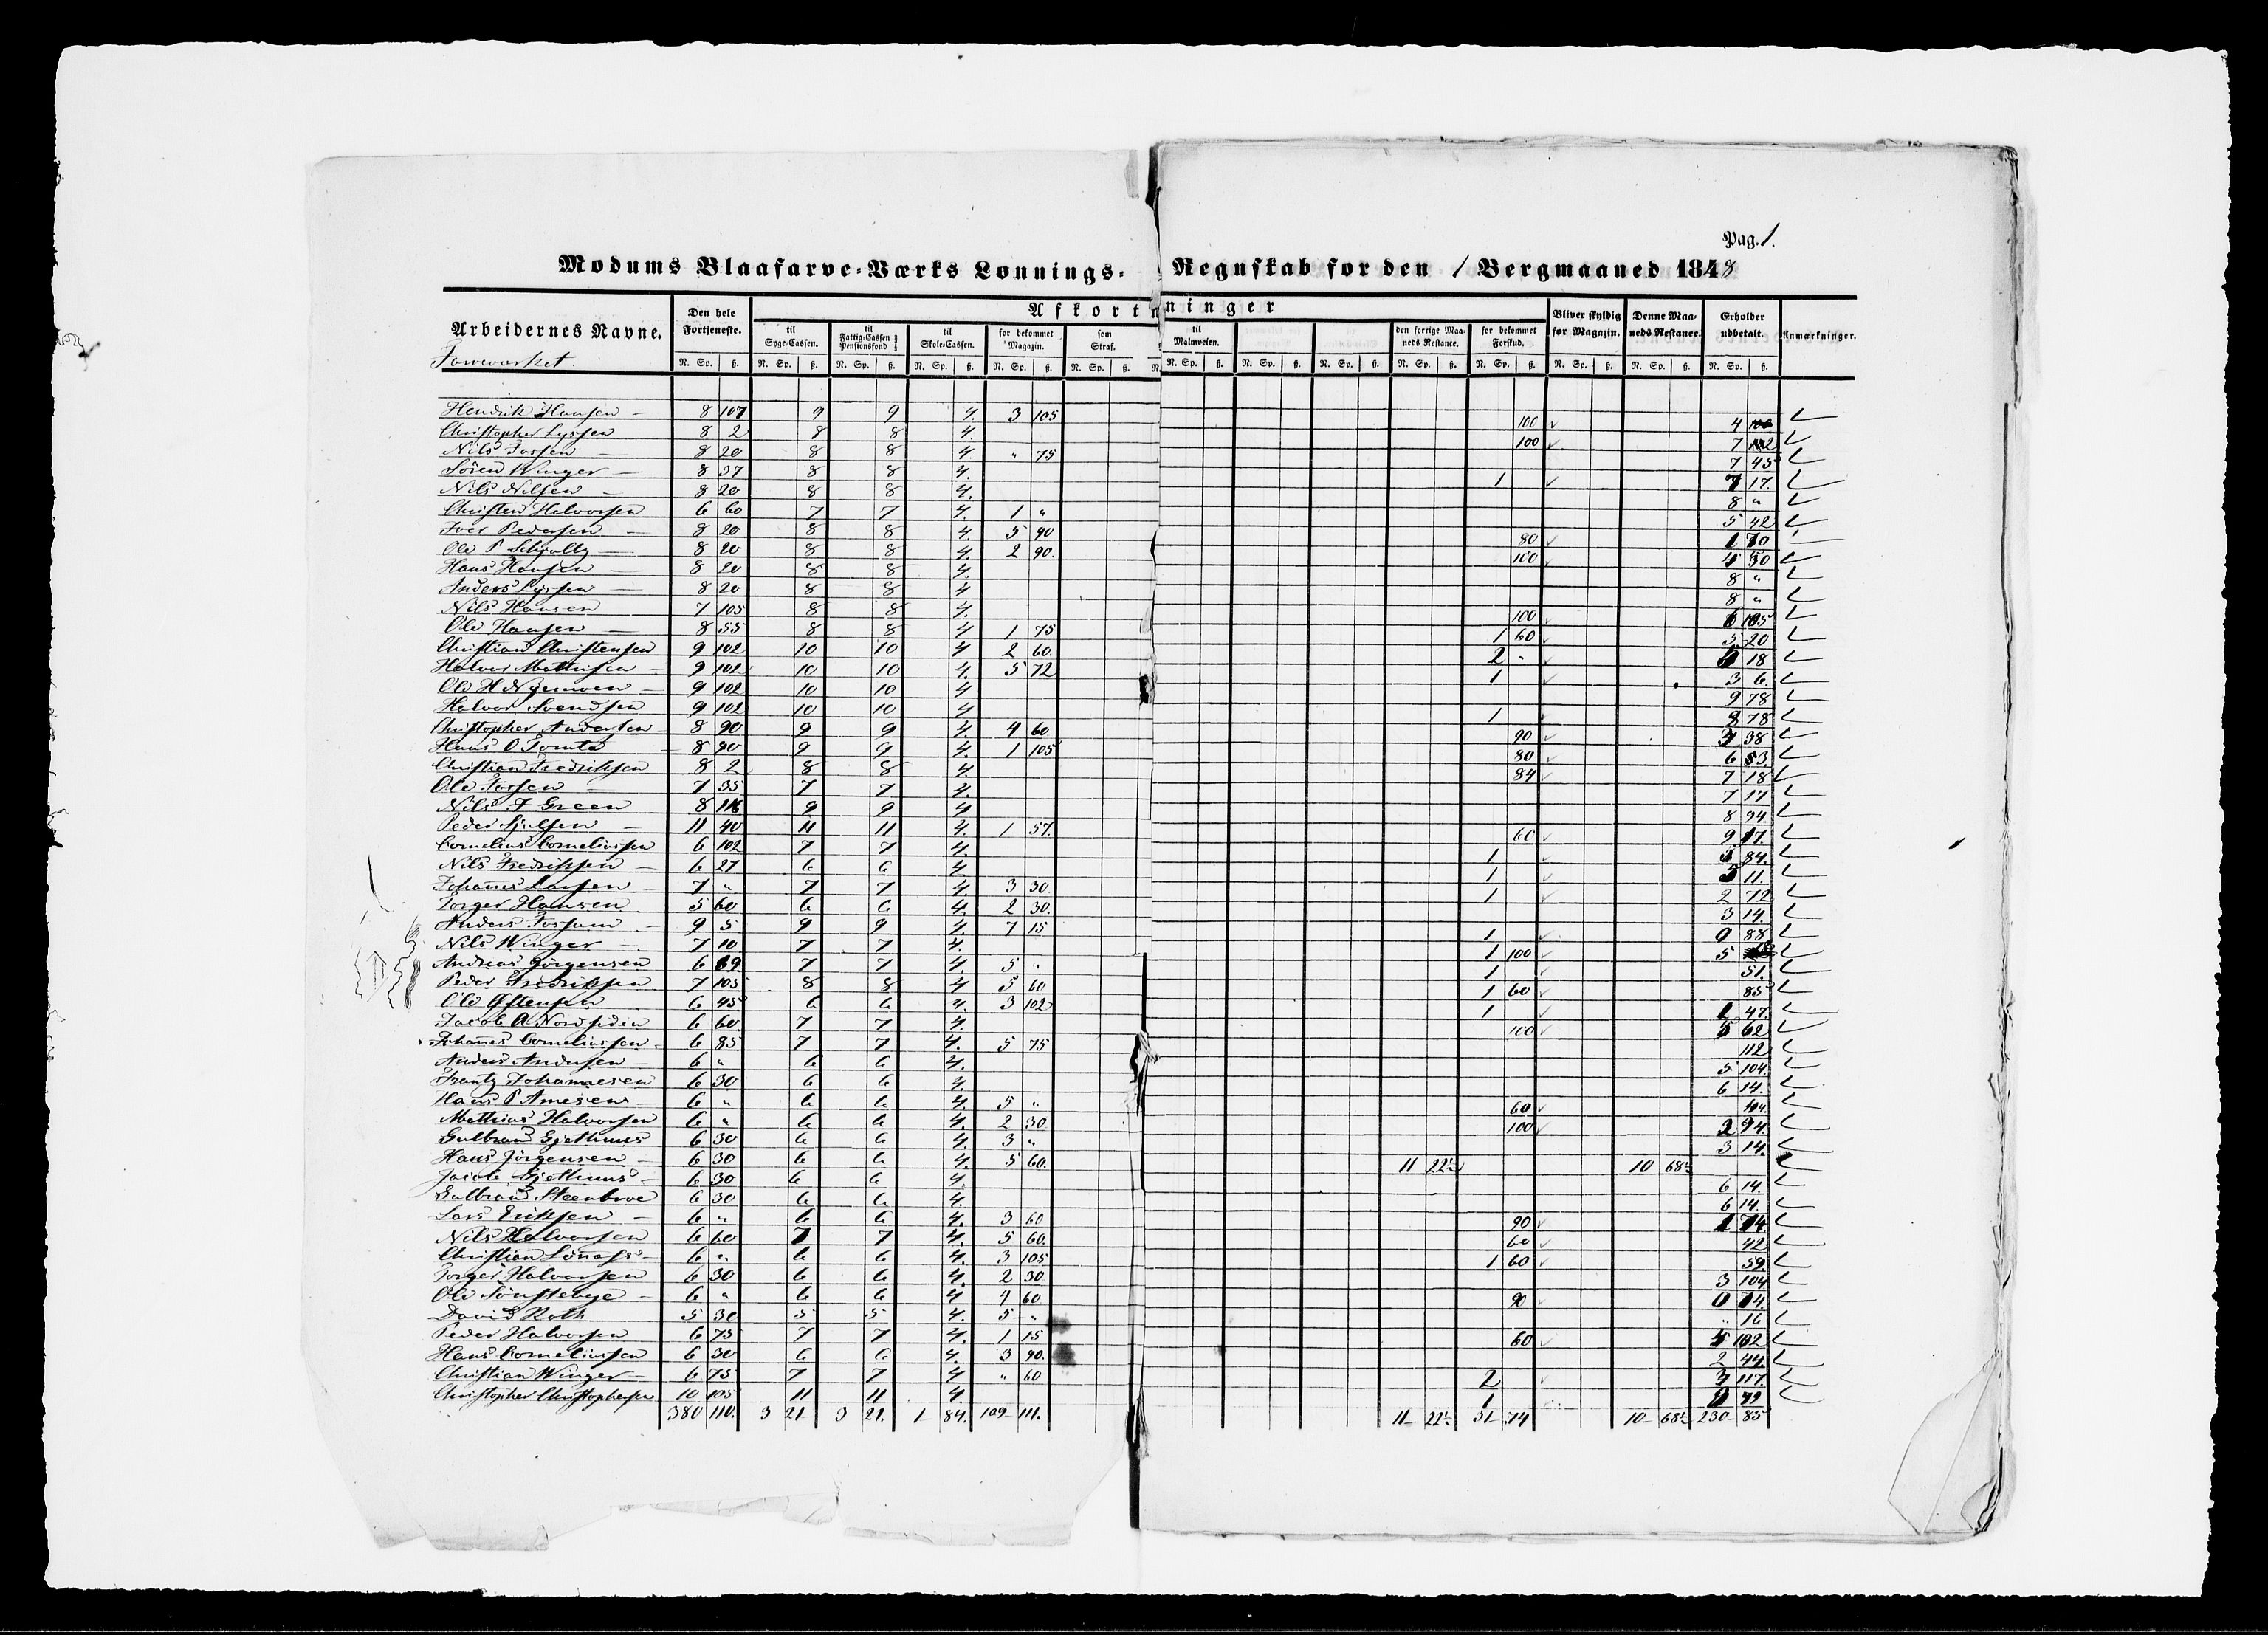 Pag. 1.
Modums Blaafarve-Værks Lønnings- Regnskab for den 1 Bergmaaned 1848
Arbeidernes Navne. Den hele Fortjeneste. Afkortninger Bliver skyldig for Magazin. Denne Maaneds Restance. Erholder udbetalt. Anmærkninger.
til Syge-Cassen. til Fattig-Cassen Pensionsfond til Skole-Cassen. for bekommet Magazin. som Straf. til Malmveien. den forrige Maaneds Restance. for bekommet Forskud.
Farveværket
N. Sp. ß. N. Sp. ß. N. Sp. ß. N. Sp. ß. N. Sp. ß. N. Sp. ß. N. Sp. ß. N. Sp. ß. N. Sp. ß. N. Sp. ß. N. Sp. ß. N. Sp. ß. N. Sp. ß. N. Sp. ß.
Hendrik Hansen 8 107 9 9 4 3 105 100 4
Christopher Lyssen 8 2 8 8 4 100 7
Nils Fossen 8 20 8 8 4 " 75 7 45
Sören Winger 8 37 8 8 4 1 7 17
Nils Nilsen 8 20 8 8 4 8 "
Christen Halvorsen 6 60 7 7 4 1 " 5 42
Iver Pedersen 8 20 8 8 4 5 90 80 1 70
Ole P 8 20 8 8 4 2 90 100 4 50
Hans Hansen 8 20 8 8 4 8 "
Anders Lyssen 8 20 8 8 4 8 "
Nils Hansen 7 105 8 8 4 100 6 105
Ole Hansen 8 55 8 8 4 1 75 1 60 5 20
Christian Christensen 9 102 10 10 4 2 60 2 - 5 18
Halvor Mathisen 9 102 10 10 4 5 72 1 3 6
Ole H Nyemoen 9 102 10 10 4 9 78
Halvor Svendsen 9 102 10 10 4 1 8 78
Christopher Andersen 8 90 9 9 4 4 60 90 3 38
Hans O Tomta 8 90 9 9 4 1 105 80 6 53
Christian Fredriksen 8 2 8 8 4 84 7 18
Ole Fossen 7 35 7 7 4 7 17
Nils F Green 8 116 9 9 4 8 94
Peder Sjulsen 11 40 11 11 4 1 57 60 9 17
Cornelius Corneliussen 6 102 7 7 4 1 84
Nils Fredriksen 6 27 6 6 4 1 5 11
Johannes Larsen 7 " 7 7 4 3 30 1 2 72
Torger Hansen 5 60 6 6 4 2 30 3 14
Anders Fossum 9 5 9 9 4 7 15 1 0 88
Nils Winger 7 10 7 7 4 1 100 5
Andreas Jörgensen 6 69 7 7 4 5 " 1 51
Peder Fredriksen 7 105 8 8 4 5 60 1 60 85
Ole Östensen 6 45 6 6 4 3 102 1 1 47
Jacob A Nordsiden 6 60 7 7 4 100 5 62
Johannes Corneliussen 6 85 7 7 4 5 75 112
Anders Andersen 6 " 6 6 4 5 104
Frantz Johannesen 6 30 6 6 4 6 14
Hans P Arnesen 6 " 6 6 4 5 " 60 44
Mathias Halvorsen 6 " 6 6 4 2 30 100 2 94
Gulbrand Gjethuus 6 30 6 6 4 3 " 3 14
Hans Jörgensen 6 30 6 6 4 5 60 11 22½ 10 68½
Jacob Gjethuus 6 30 6 6 4 6 14
Gulbrand Steenbroe 6 30 6 6 4 6 14
Lars Eriksen 6 " 6 6 4 3 60 90 1 74
Nils Halvorsen 6 60 7 7 4 5 60 60 42
Christian 6 " 6 6 4 3 105 1 60 59
Torger Halvorsen 6 30 6 6 4 2 30 3 104
Ole 6 " 6 6 4 4 60 90 0 74
David Roth 5 30 5 5 4 5 " " 16
Peder Halvorsen 6 75 7 7 4 1 15 60 4 102
Hans Corneliussen 6 30 6 6 4 3 90 2 44
Christian Winger 6 75 7 7 4 " 60 2 3 117
Christopher Christophersen 10 105 11 11 4 1
380 110. 3 21 3 21. 1 84. 109 111. 11 22½ 31 74 10 68½ 230 85